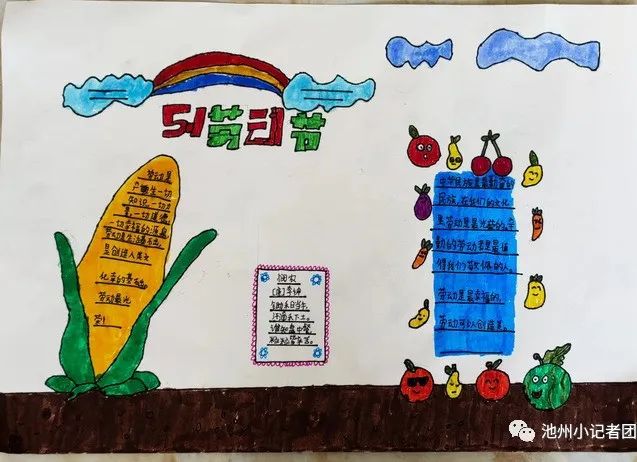 51劳动节
劳动是
产生一切
知识、一切力
量、一切道德、
一切幸福的源泉
劳动是
是创造人类文
化幸的基础。
劳动最光
荣!
悯农
[唐]李绅
锄禾日当午,
汗滴禾下土。
谁知盘中餐
粒粒皆辛苦。
中华民族是最勤劳的
民族,在我们的文化
里劳动是最光荣的,辛
勤的劳动者是最值
得我们敬佩的人。
劳动是最幸福的,
劳动可以创造美。
池州小记者团